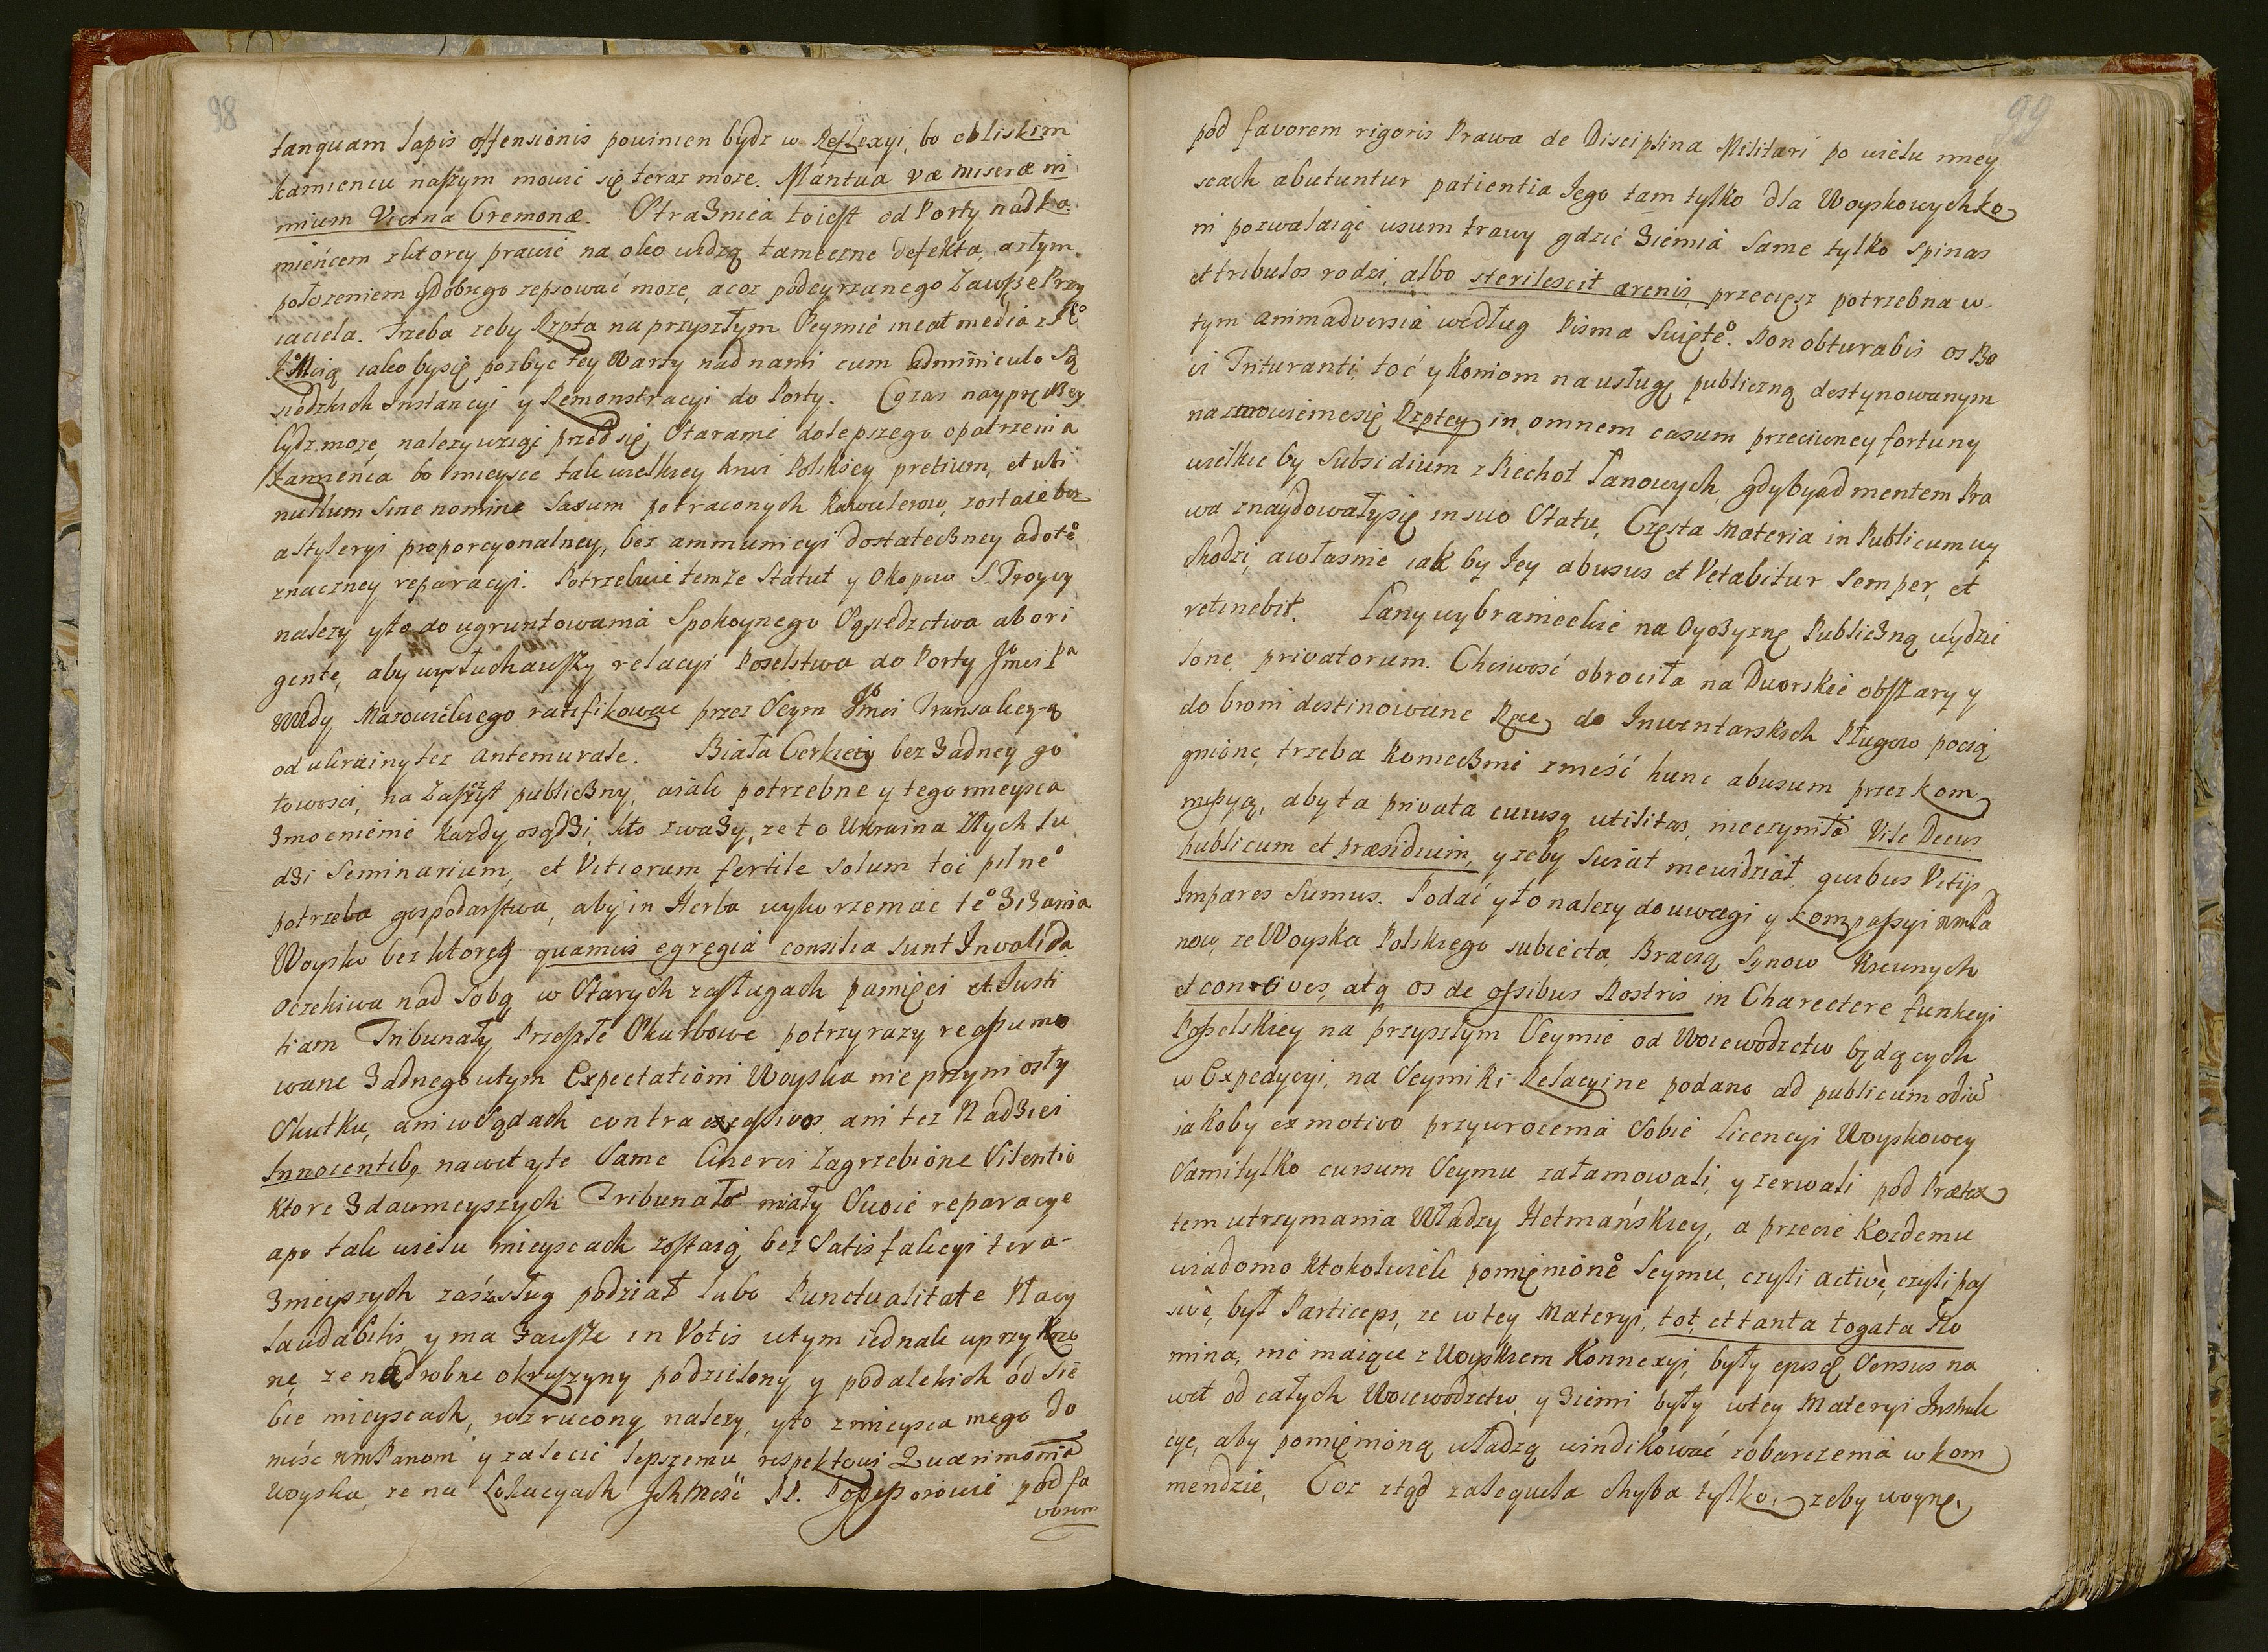 98
tanquam lapis offensionis powinien bydz w Reflexyi, bo obliskim
kamiencu naszym mowić się teraz moze. Mantua væ miseræ ni
mium Vicina Cremonæ. Straznica to iest od Porty nad ka
mieńcem z ktorey prawie na oko widzą tameczne defekta, a złym
połozeniem y dobrego zepsować moze, a coz podeyrzanego Zawsze Przy
iaciela. trzeba zeby Rzpta na przyszłym Seymie ineat media z
iako by się pozbyć tey Warty nad nami cum adminiculo Są
siedzkich Instancyi y Remonstracyi do Porty. Czas nayprędzey
bydz moze, nalezy wziąć przed się, Staranie do lepszego opatrzenia
kamieńca bo mieysce tak wielkiey krwi Polskiey pretium, et ubi
nullum sine nomine Saxum potraconych Kawalerow, zostaie bez
artyleryi proporcyonalney, bez ammunicyi dostateczney ad
znaczney reparacyi. Potrzebuie temze Statut y Okopow S. Troycy
nalezy y to do ugruntowania Spokoynego Sąsiedztwa ab ori
gente, aby wysłuchawszy relacyi Poselstwa do Porty Jmci Pa
Wdy Mazowieckiego ratifikowac przez Seym Jmci Transakcyą
od ukrainy tez antemurale. Biała Cerkiew bez zadney go
towosci, na Zaszczyt publiczny, a iak potrzebne y tego mieysca
zmocnienie kazdy osądzi, kto zwazy, ze to Ukraina Złych lu
dzi Seminarium, et Vitiorum fertile solum toć pilne°
potrzeba gospodarstwa, aby in Herba wykorzeniac te°
Woysko bez ktorey quamvis egregia consilia sunt Invalida
oczekiwa nad Sobą w Starych zasługach pamięci et Justi
tiam Tribunały Przeszłe Skarbowe po trzy razy reassumo
wane zadnego w tym Expectationi Woyska nie przyniosły
Skutku, ani w Sądach contra excessivos, ani tez Nadziei
Innocentibq nawet y te Same Cinerei Zagrzebione Silentio
ktore z dawnieyszych Tribunałow miały Swoie reparacye
a po tak wielu mieyscach zostaią bez Satisfakcyi tera-
znieyszych zás zasług podział lubo Punctualitate Płacy
laudabilis, y ma zawsze in Votis w tym iednak uprzykrzo
ne, ze na drobne okruszyny podzielony y po dalekich od Sie
bie mieyscach, rozrucony nalezy, y to z mieysca mego do
nieść WmPanom y zalecic lepszemu respektowi Quærimonia
Woyska, ze na Lokacyach JchMość PP. Possessorowie pod fa
vorem
99
pod favorem rigoris Prawa de Disciplina Militari po wielu miey
scach abutuntur patientia Jego tam tylko dla Woyskowych ko
ni pozwalaiąc usum trawy gdzie ziemia Same tylko spinas
et tribulos rodzi, albo sterilescit arenis, przeciesz potrzebna w
tym animadversia według Pisma Swięte°. Non obturabis os Bo
vi Triturant​i, toć y koniom na usługę publiczną destynowanym
na Rzptey in omnem casum przeciwney fortuny
wielkie by Subsidium z Piechot Łanowych, gdyby ad mentem Pra
wa znaydowały się in suo Statu, Częsta Materia in Publicum wy
chodzi, a własnie iak by Jey abusus et Vetabitur Semper, et
retinebit. Łany wybranieckie na Oyczyznę Publiczną wydzie
lone, privatorum. Chciwość obrociła na Dworskie obszary y
do broni destinowane Ręce do Inwentarskich Pługow pocią
gnione, trzeba koniecznie znieść hunc abusum przez kom
missyą, aby ta privata cuiusq utilitas, nieczyniła Vile Decus
publicum et præsidium, y zeby Swiat niewidział, quibus Vitijs
Impares Sumus. Podać y to nalezy do uwagi y kompassyi WmPa
now, ze Woyska Polskiego subiecta, Bracią Synow Krewnych
et concives, atq os de ossibus Nostris in Charectere funkcyi
Poselskiey na przyszłym Seymie od Woiewodztw będących
w Expedycyi, na Seymiki Relacyine podano ad publicum odiū
iakoby ex motivo przywrocenia Sobie licencyi Woyskowey
Sami tylko cursum Seymu zatamowali, y zerwali pod Prætex
tem utrzymania Władzy Hetmańskiey, a przecie Kozdemu
wiadomo ktokolwiek pomięnione° Seymu, czyli activè, czyli pas
sivè, był Particeps, ze w tey Materyi, tot, et tanta togata No
mina, nie maiące z Woyskiem Konnexyi, były eiusdę Sensus na
wet od całych Woiewodztw, y ziemi były w tey Materyi Instruk
cye, aby pomięnioną władzą windikować zobaczenia w kom
mendzie, Coz ztąd za sequela chyba tylko, zeby woynę,